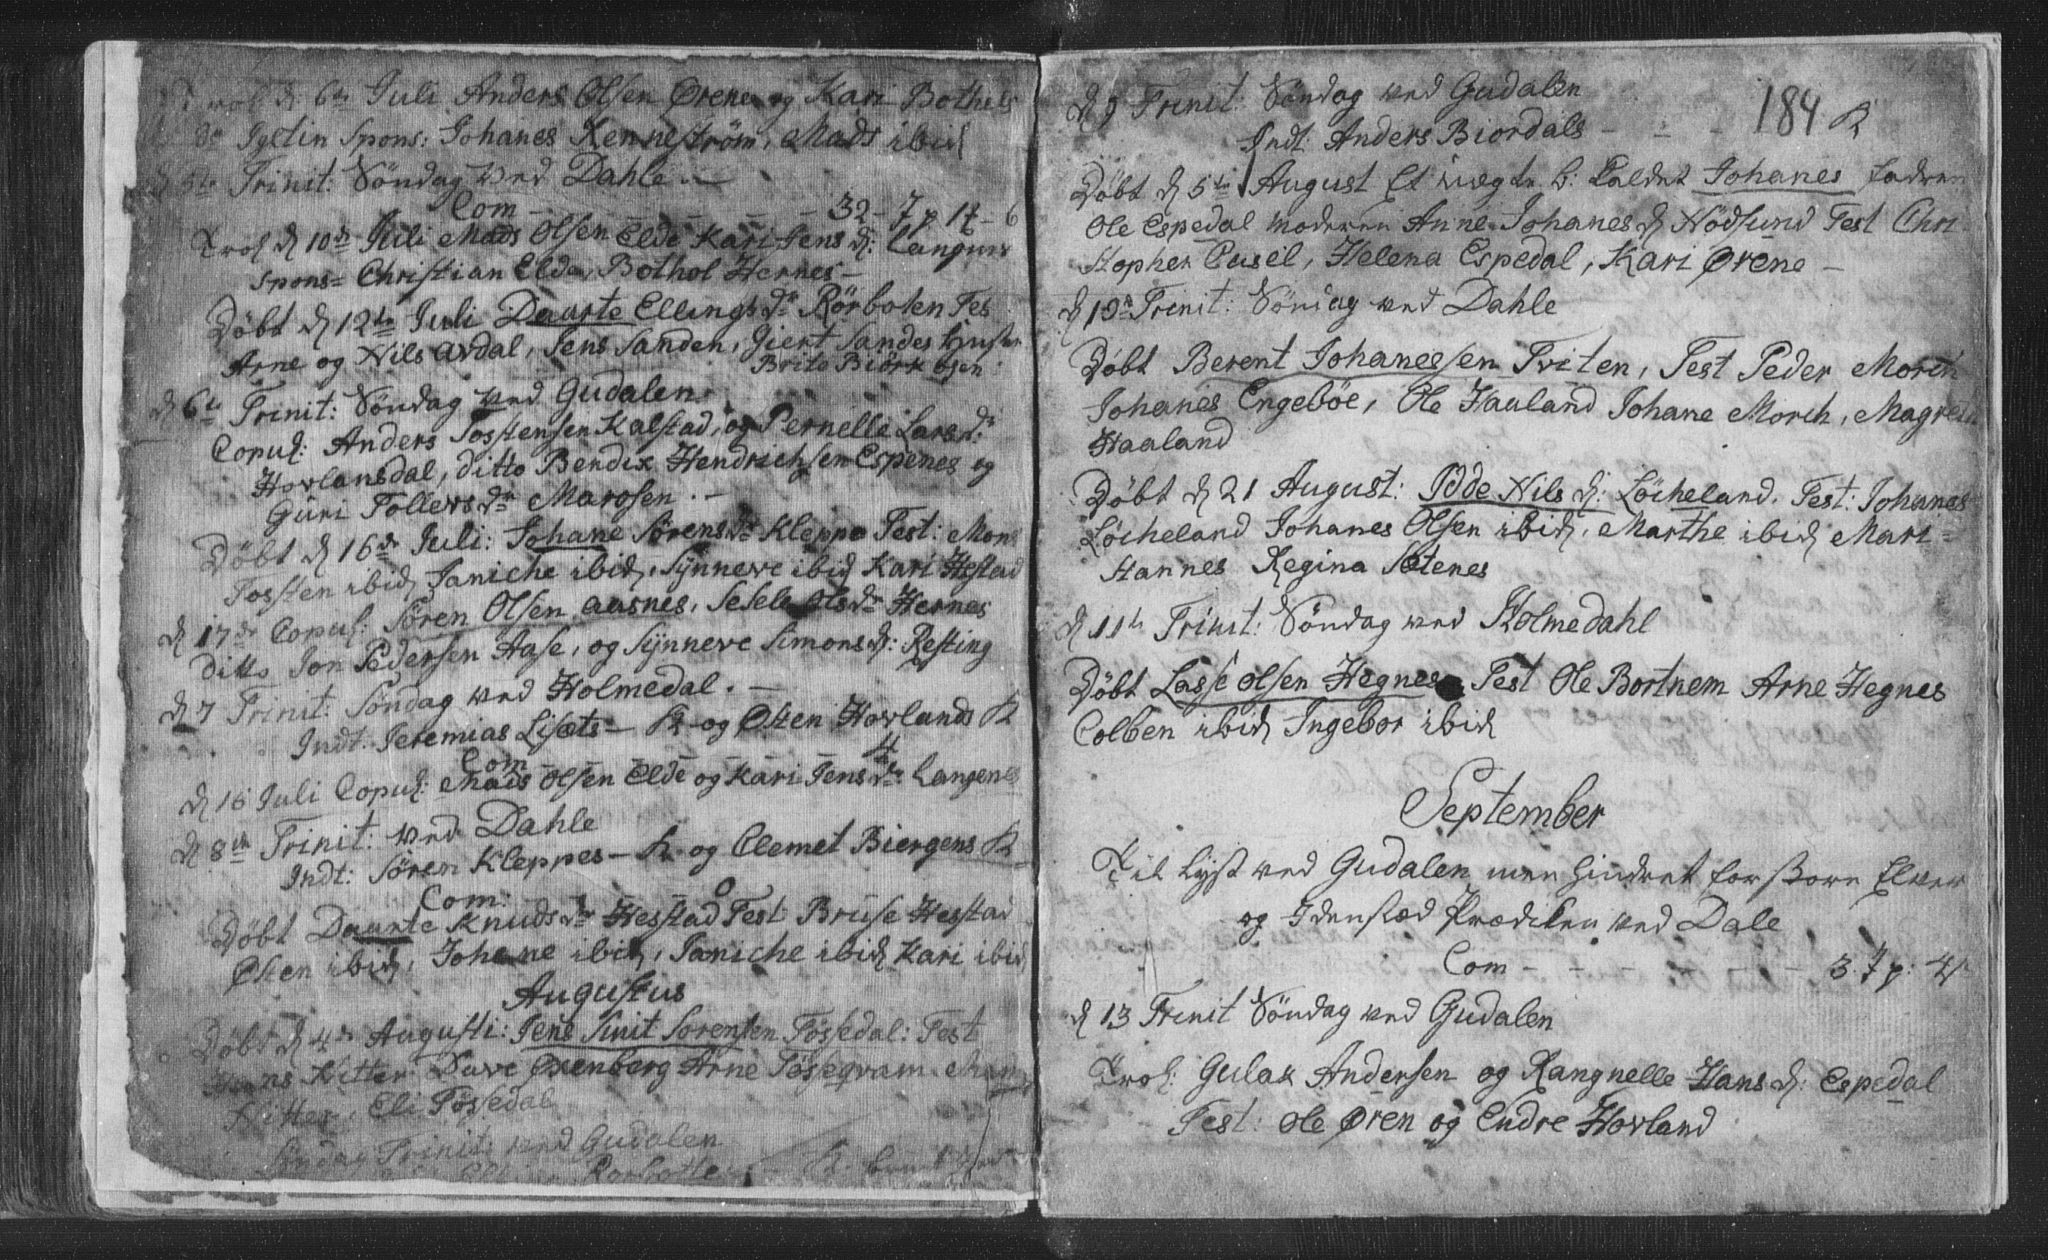 Trol d: 6te Juli Anders Olsen Ørene og Kari Bothels
dr Igelin Spons: Johanes Rennestrøm, Mads ibid
d 5te Trinit: Søndag ved Dahle. —
Com — — — — — — 32 - 7 p 17 - 6
Trol d 10de Juli Mads Olsen Elde Kari Jens d: Langnes
Spons= Christian Elde, Bothol Hernes —
Døbt d 12te Juli Daarte Ellings dr Rørboten Tes
Arne og Nils Avdal, Jens Sanden, Giert Sandes Hustr
Brito Biørkosen
d 6te Trinit: Søndag ved Gudalen
Copul: Anders Tostensen Kalstad, og Pernelle Lars d:
Hovlandsdal, ditto Bendix Hendrichsen Espenes og
Guri Follers dr Marosen. —
Døbt d 16de Juli: Johane Sørens dr Kleppe Test: Mons
Tosten ibid Janiche ibid, Synneve ibid Kari Hestad
d 17de Copul: Søren Olsen Aasnes, Sesele Ols dr Hernes
Ditto Jon Pedersen Aase, og Synneve Simons d: Resting
d 7 Trinit: Søndag ved Holmedal. —
Indt. Jeremias Lisæts — K — og Østen Hovlands K
Com — — — — — — 4
d 16 Juli Copul: Mads Olsen Elde og Kari Jens dr Langenes
d 8de Trinit: ved Dahle
Indt: Søren Kleppes — K — og Clemet Biergens K
Com: 0
Døbt Daarte Knuds dr Hestad Test Bruse Hestad
Østen ibid, Johane ibid, Janiche ibid Kari ibid
Augustus
Døbt d 4de Augusti: Jens Smit Sorensen Fossedal: Test
Hans Kitter Dave Oxenberg Arne Søseqvam Man
Kitter, Eli Fossedal
Søndag Trinit: ved Gudalen
Rorbotte
d 9 Trinit: Søndag ved Gudalen
184
Indt: Anders Biordals — — — K
Døbt d 5te August Et uægte b: Kaldet Johanes fadren
Ole Espedal moderen Anne Johanes d Nødsund Test Chri-
stopher Casel, Helena Espedal, Kari Ørene —
d 10de Trinit: Søndag ved Dahle
Døbt Berent Johanessen Tviten, Test Peder Morch
Johanes Engebøe, Ole Haaland Johane Morch, Magrete
Haaland
Døbt d 21 August: Odde Nils d: Løcheland. Test: Johanes
Løcheland Johanes Olsen ibid, Marthe ibid Mari=
Hannes Regina Sætenes
d 11te Trinit: Søndag ved Holmedahl
Døbt Lasse Olsen Hegnes Test Ole Bortnem Arne Hegnes
Colben ibid Ingebor ibid
September
Til lyst ved Gudalen men hindret for store Elver
og Idensted Prædiken ved Dale
Com — — — — — — 3. 7 p: 4
d 13 Trinit Søndag ved Gudalen
Trol: Gulak Andersen og Rangnelle Hans d: Espedal
Test: Ole Øren og Endre Hovland